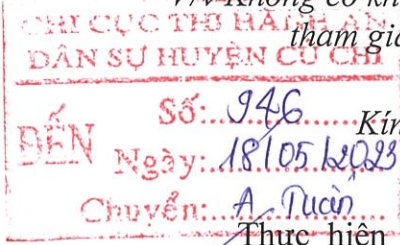 V/v Không có kh
CHI CỤC THI HÀNH ÁN
tham gia
DÂN SỰ HUYỆN CỦ CHI
ĐẾN
Số: 946
Kín
Ngày: 18/05/2023
Chuyển: A. Tuấn
Thực hiện